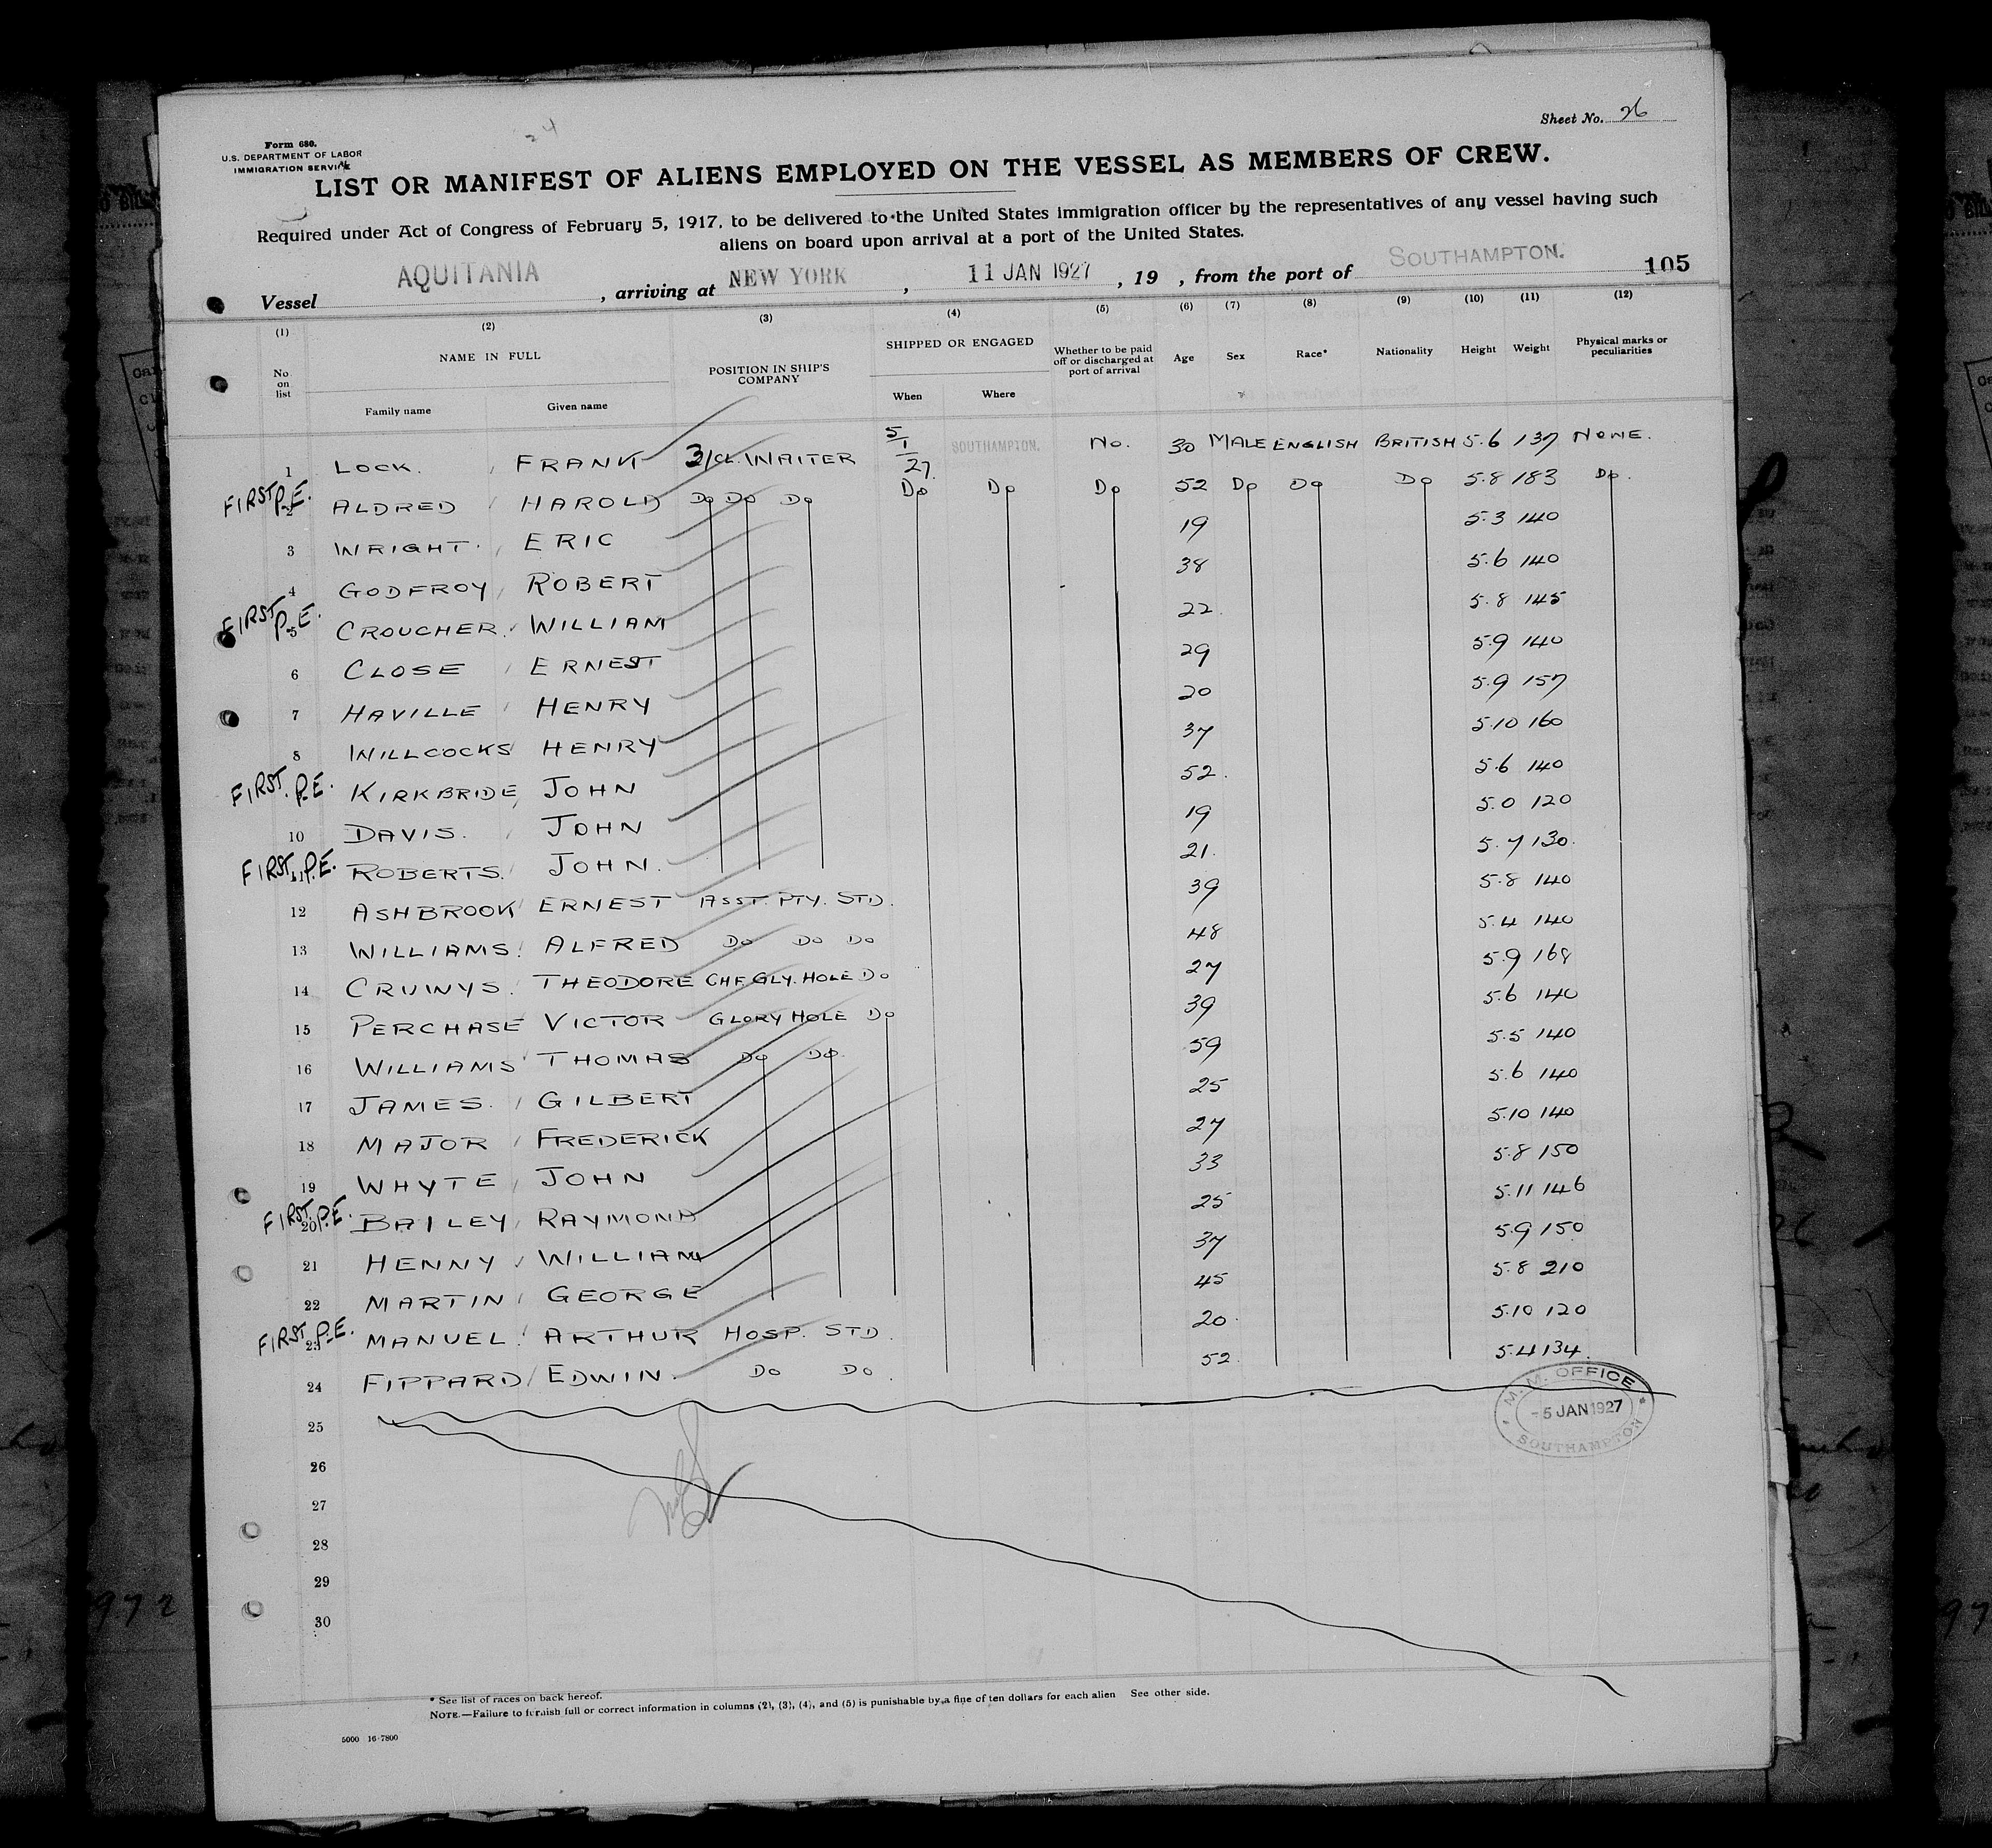 Sheet No. 26
24
Form 680.
U.S. DEPARTMENT OF LABOR
IMMIGRATION SERVICE
LIST OR MANIFEST OF ALIENS EMPLOYED ON THE VESSEL AS MEMBERS OF CREW.
Required under Act of Congress of February 5, 1917, to be delivered to the United States immigration officer by the representatives of any vessel having such
aliens on board upon arrival at a port of the United States.
Vessel AQUITANIA, arriving at NEW YORK, 11 JAN 1927, 19 , from the port of SOUTHAMPTON. 105
(1) (2) (3) (4) (5) (6) (7) (8) (9) (10) (11) (12)
No on list NAME IN FULL Family name Given name POSITION IN SHIP'S COMPANY SHIPPED OR ENGAGED When Where Whether to be paid off or discharged at port of arrival Age Sex Race* Nationality Height Weight Physical marks or peculiarities
1 LOCK. FRANK 3/CL. WAITER 5/1/27. SOUTHAMPTON. No. 30 MALE ENGLISH BRITISH 5.6 137 NONE.
FIRST P.E. 2 ALDRED HAROLD Do Do Do Do Do Do 52 Do Do Do 5.8 183 Do.
3 WRIGHT. ERIC 19 5.3 140
4 GODFROY ROBERT 38 5.6 140
FIRST P.E. 5 CROUCHER. WILLIAM 22. 5.8 145
6 CLOSE ERNEST 29 5.9 140
7 HAVILLE HENRY 20 5.9 157
8 WILLCOCKS HENRY 37 5.10 160
FIRST. P.E. KIRKBRIDE JOHN 52. 5.6 140
10 DAVIS. JOHN 19 5.0 120
FIRST. P.E. 11 ROBERTS. JOHN. 21. 5.7 130.
12 ASHBROOK ERNEST ASST. PTY. STD. 39 5.8 140
13 WILLIAMS. ALFRED Do Do Do 48 5.4 140
14 CRUWYS. THEODORE CHF. GLY. HOLE Do 27 5.9 168
15 PERCHASE VICTOR GLORY HOLE Do 39 5.6 140
16 WILLIAMS THOMAS Do Do. 59 5.5 140
17 JAMES. GILBERT 25 5.6 140
18 MAJOR FREDERICK 27 5.10 140
19 WHYTE JOHN 33 5.8 150
FIRST. P.E. 20 BAILEY RAYMOND 25 5.11 146
21 HENNY WILLIAM 37 5.9 150
22 MARTIN GEORGE 45 5.8 210
FIRST. P.E. 23 MANUEL. ARTHUR HOSP. STD. 20. 5.10 120
24 FIPPARD EDWIN. Do Do. 52. 5.4 134.
25
M. M. OFFICE
-5 JAN 1927
SOUTHAMPTON
26
27
28
29
30
* See list of races on back hereof.
NOTE.—Failure to furnish full or correct information in columns (2), (3), (4), and (5) is punishable by a fine of ten dollars for each alien See other side.
5000 16-7800